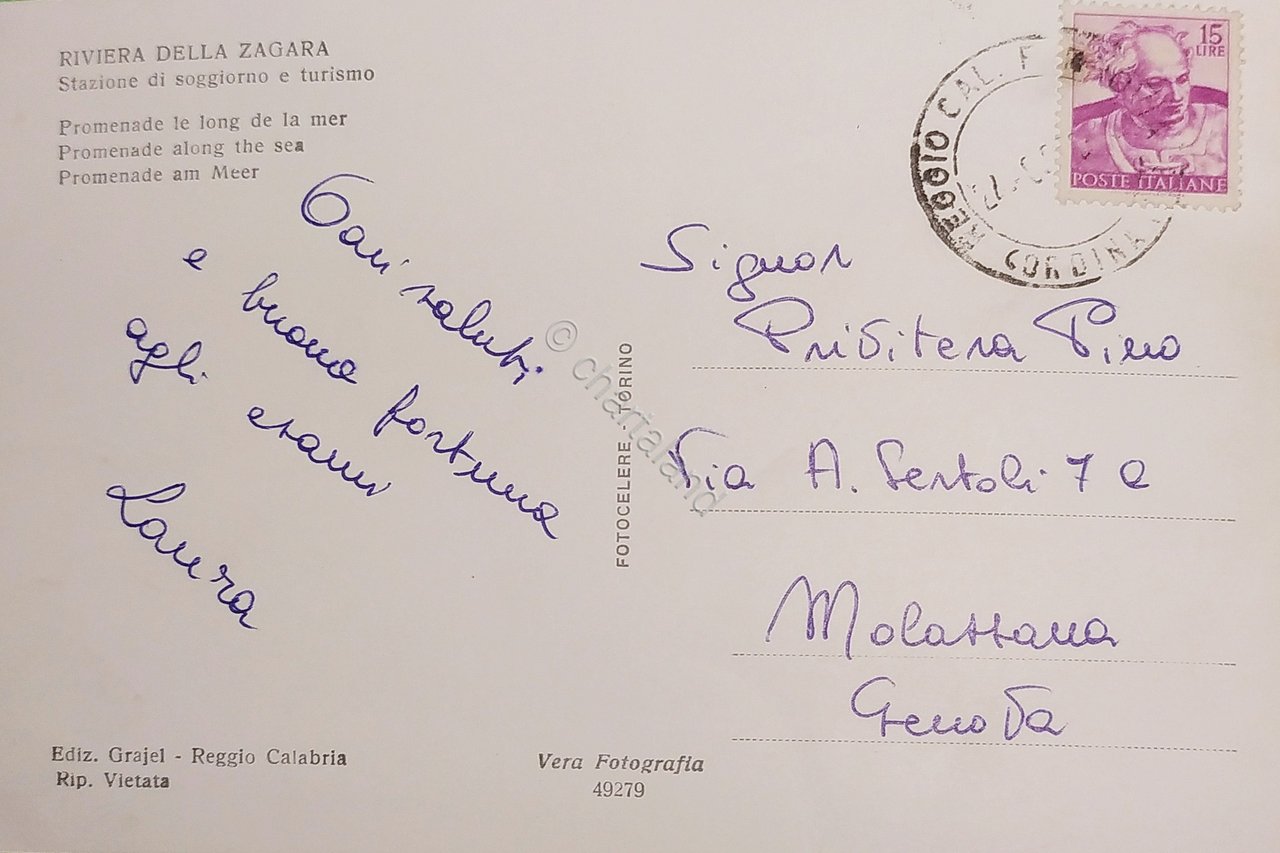 RIVIERA DELLA ZAGARA
Stazione di soggiorno e turismo
Promenade le long de la mer
Promenade along the sea
Promenade am Meer
Cari saluti
e buona fortuna
agli esami
Laura
Ediz. Grajel - Reggio Calabria
Rip. Vietata
Vera Fotografia
49279
FOTOCELERE - TORINO
© chartaland
15
LIRE
POSTE ITALIANE
REGGIO CAL. F
ORDINA
Signor
Privitera Pino
Via A. Sertoli 7 a
Molassana
Genova